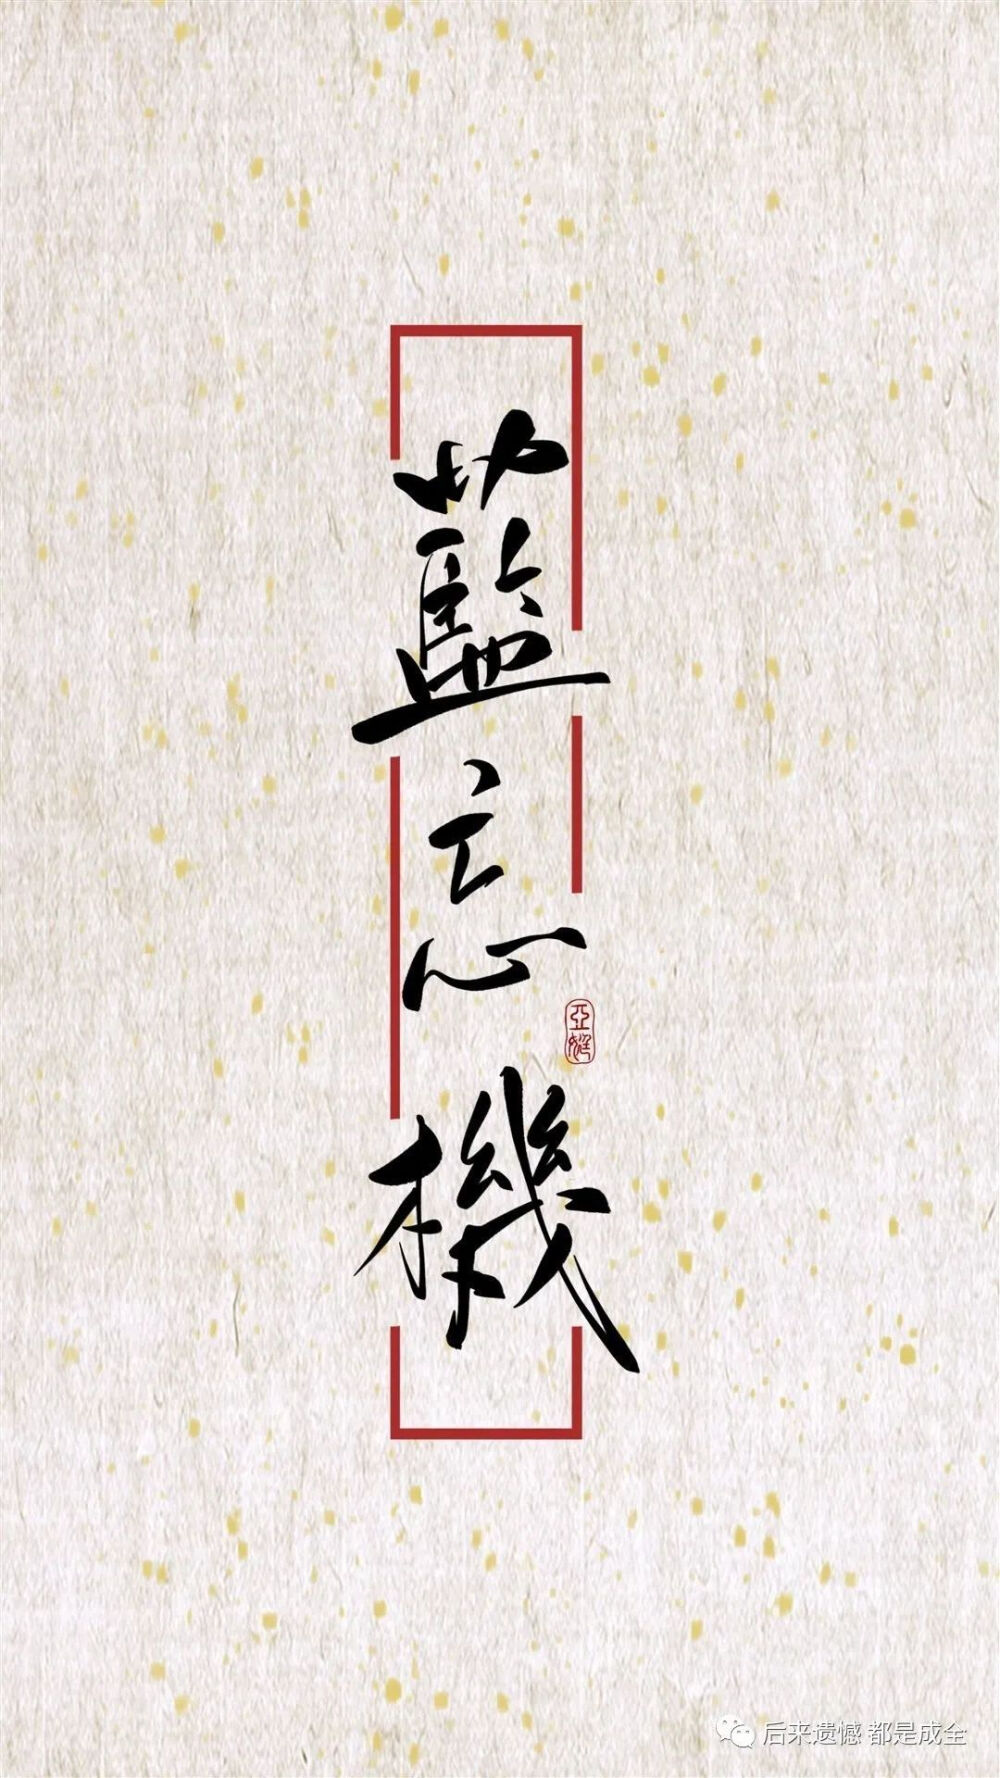 藍忘機
后来遗憾 都是成全